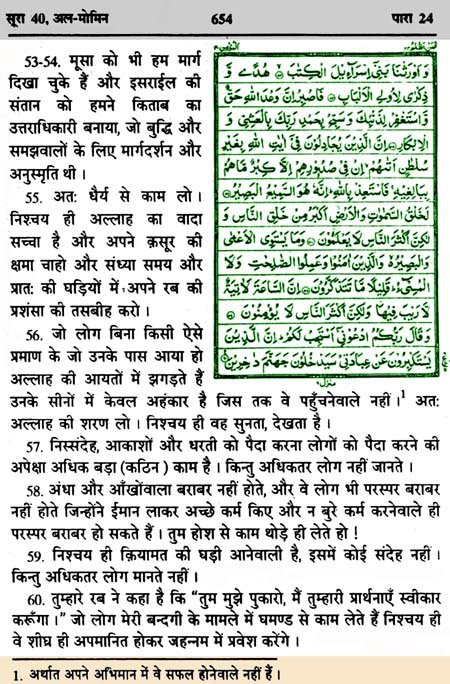 सूरा 40, अल-मोमिन 654 पारा 24
53-54. मूसा को भी हम मार्ग
दिखा चुके हैं और इसराईल की
संतान को हमने किताब का
उत्तराधिकारी बनाया, जो बुद्धि और
समझवालों के लिए मार्गदर्शन और
अनुस्मृति थी ।
55. अत: धैर्य से काम लो ।
निश्चय ही अल्लाह का वादा
सच्चा है और अपने क़सूर की
क्षमा चाहो और संध्या समय और
प्रात: की घड़ियों में अपने रब की
प्रशंसा की तसबीह करो ।
56. जो लोग बिना किसी ऐसे
प्रमाण के जो उनके पास आया हो
अल्लाह की आयतों में झगड़ते हैं
وَاَوْرَثْنَا بَنِيْٓ اِسْرَآءِيْلَ الْكِتٰبَ هُدًى وَّ
ذِكْرٰى لِاُولِي الْاَلْبَابِ فَاصْبِرْ اِنَّ وَعْدَ اللّٰهِ حَقٌّ
وَّاسْتَغْفِرْ لِذَنْبِكَ وَسَبِّحْ بِحَمْدِ رَبِّكَ بِالْعَشِيِّ وَ
الْاِبْكَارِ اِنَّ الَّذِيْنَ يُجَادِلُوْنَ فِيْٓ اٰيٰتِ اللّٰهِ بِغَيْرِ
سُلْطٰنٍ اَتٰىهُمْ اِنْ فِيْ صُدُوْرِهِمْ اِلَّا كِبْرٌ مَّا هُمْ
بِبَالِغِيْهِ فَاسْتَعِذْ بِاللّٰهِ اِنَّهٗ هُوَ السَّمِيْعُ الْبَصِيْرُ
لَخَلْقُ السَّمٰوٰتِ وَالْاَرْضِ اَكْبَرُ مِنْ خَلْقِ النَّاسِ وَ
لٰكِنَّ اَكْثَرَ النَّاسِ لَا يَعْلَمُوْنَ وَمَا يَسْتَوِي الْاَعْمٰى
وَالْبَصِيْرُ وَالَّذِيْنَ اٰمَنُوْا وَعَمِلُوا الصّٰلِحٰتِ وَلَا
الْمُسِيْٓءُ قَلِيْلًا مَّا تَتَذَكَّرُوْنَ اِنَّ السَّاعَةَ لَاٰتِيَةٌ
لَّا رَيْبَ فِيْهَا وَلٰكِنَّ اَكْثَرَ النَّاسِ لَا يُؤْمِنُوْنَ
وَقَالَ رَبُّكُمُ ادْعُوْنِيْٓ اَسْتَجِبْ لَكُمْ اِنَّ الَّذِيْنَ
يَسْتَكْبِرُوْنَ عَنْ عِبَادَتِيْ سَيَدْخُلُوْنَ جَهَنَّمَ دٰخِرِيْنَ
उनके सीनों में केवल अहंकार है जिस तक वे पहुँचनेवाले नहीं ।¹ अत:
अल्लाह की शरण लो । निश्चय ही वह सुनता, देखता है ।
57. निस्संदेह, आकाशों और धरती को पैदा करना लोगों को पैदा करने की
अपेक्षा अधिक बड़ा (कठिन) काम है । किन्तु अधिकतर लोग नहीं जानते ।
58. अंधा और आँखोंवाला बराबर नहीं होते, और वे लोग भी परस्पर बराबर
नहीं होते जिन्होंने ईमान लाकर अच्छे कर्म किए और न बुरे कर्म करनेवाले ही
परस्पर बराबर हो सकते हैं । तुम होश से काम थोड़े ही लेते हो !
59. निश्चय ही क़ियामत की घड़ी आनेवाली है, इसमें कोई संदेह नहीं ।
किन्तु अधिकतर लोग मानते नहीं ।
60. तुम्हारे रब ने कहा है कि “तुम मुझे पुकारो, मैं तुम्हारी प्रार्थनाएँ स्वीकार
करूँगा ।” जो लोग मेरी बन्दगी के मामले में घमण्ड से काम लेते हैं निश्चय ही
वे शीघ्र ही अपमानित होकर जहन्नम में प्रवेश करेंगे ।
1. अर्थात अपने अभिमान में वे सफल होनेवाले नहीं हैं ।